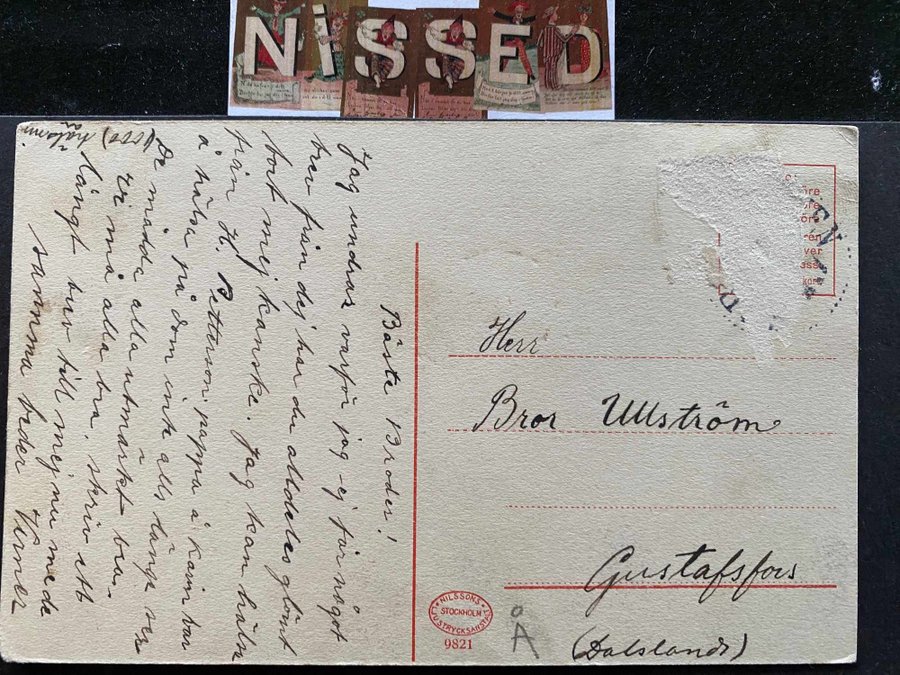 NISSED
Bäste Broder!
Jag undras varför jag ej får något
brev från dej har du alldeles glömt
bort mej kanske. Jag kan hälsa
från H. Petterson, pappa å karin var
å hälsa på dom inte alls länge sen
De mådde alla utmärkt bra.
Vi må alla bra, skriv ett
långt brev till mej nu med de
samma beder Verner
Herr
Bror Ullström
Gustafsfors
(Dalsland)
NILSSONS
STOCKHOLM
LJUSTRYCKSANSTALT
9821
Å